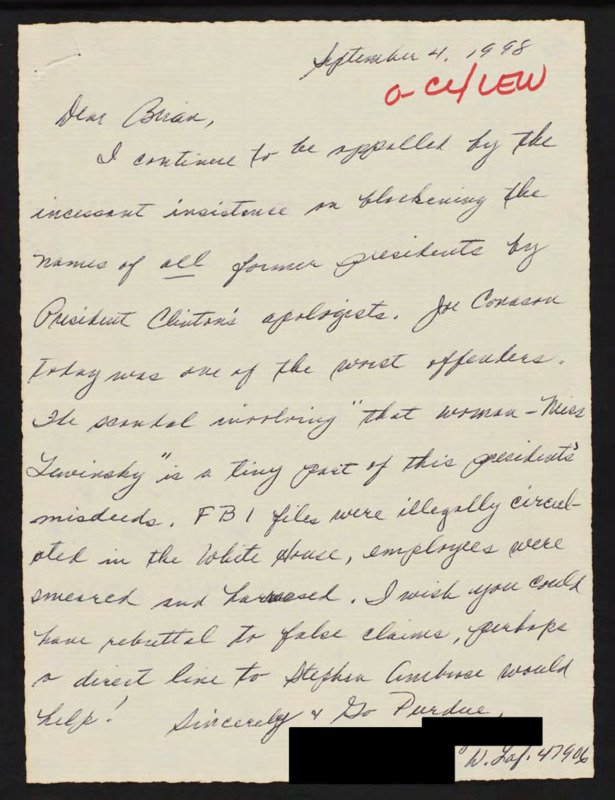 September 4, 1998
a- Ce/LEW
Dear Brian,
I continue to be appalled by the
incessant insistence on blackening the
names of all former presidents by
President Clinton's apologists. Joe Conason
today was one of the worst offenders.
The scandal involving "that woman - Miss
Lewinsky" is a tiny part of this president's
misdeeds. FBI files were illegally circul-
ated in the White House, employees were
smeared and harassed. I wish you could
have rebuttal to false claims, perhaps
a direct line to Stephen Ambrose would
help!
Sincerely & Go Purdue,
W. Laf. 47906